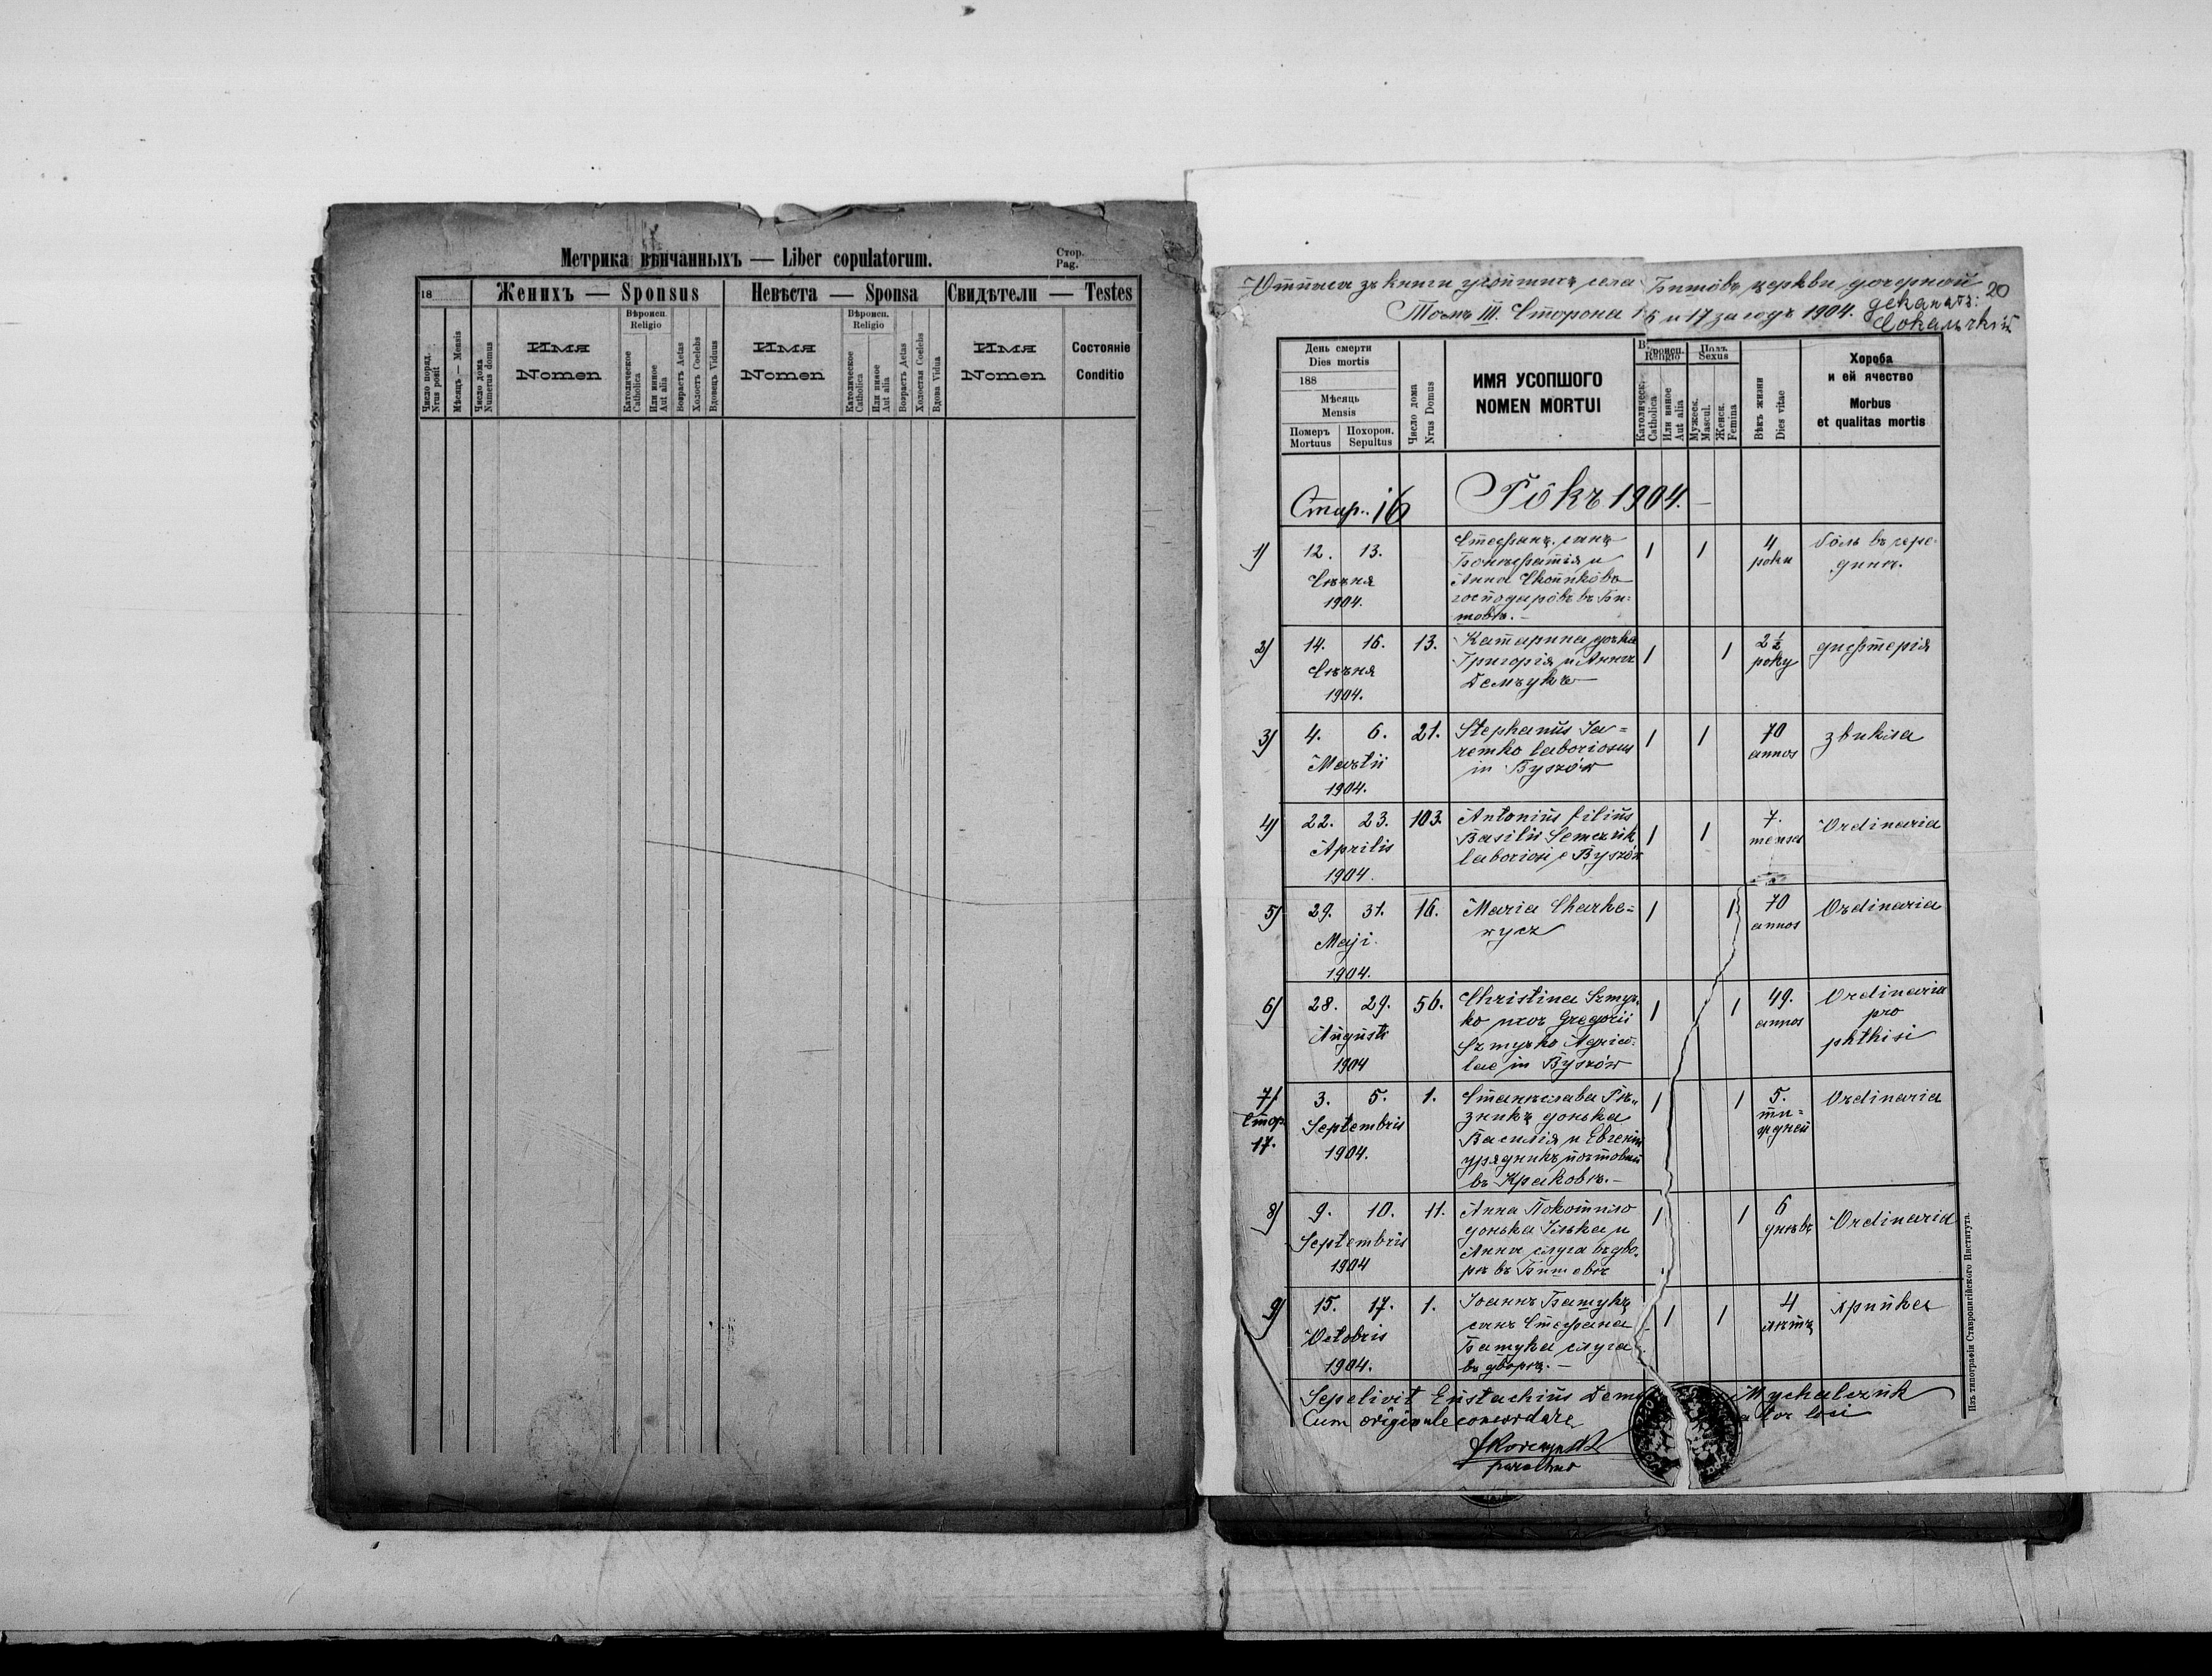 Метрика вѣнчанныхъ — Liber copulatorum.
Стор.
Pag.
18
Женихъ — Sponsus
Невѣста — Sponsa
Свидѣтели — Testes
Число поряд.
Nrus posit
Мѣсяцъ — Mensis
Число дома
Numerus domus
Имя
Nomen
Вѣроисп.
Religio
Католическое
Catholica
Или иное
Aut alia
Возрастъ Aetas
Холостъ Coelebs
Вдовецъ Viduus
Имя
Nomen
Вѣроисп.
Religio
Католическое
Catholica
Или иное
Aut alia
Возрастъ Aetas
Холостая Coelebs
Вдова Vidua
Имя
Nomen
Состояніе
Conditio
зъ книги села Бишôвъ церкви дочерной 20
Томъ III. Сторона 16 и 17 за годъ 1904. деканатъ:
Сокальскій
День смерти
Dies mortis
188
Мѣсяць
Mensis
Померъ
Mortuus
Похорон.
Sepultus
Число дома
Nrus Domus
ИМЯ УСОПШОГО
NOMEN MORTUI
Вѣроисп.
Religio
Католическ.
Catholica
Или иное
Aut alia
Полъ
Sexus
Мужеск.
Mascul.
Женск.
Femina
Вѣкъ жизни
Dies vitae
Хороба
и ей ячество
Morbus
et qualitas mortis
Стор. 16 Рôкъ 1904.
1) 12. 13. Стефанъ, сынъ 1 1 4 бôль въ сере-
Бонифатія и роки динѣ.
Сѣчня Анна
1904. господарôвъ въ Би-
шовѣ.
2) 14. 16. 13. Катарина дочка 1 1 2½ дифтерія
Григорія и Анны року
Сѣчня Демчукъ
1904.
3) 4. 6. 21. Stephanus Ja= 1 1 70 звикла
remko laboriosus annos
Martii in Byszów
1904.
4) 22. 23. 103. Antonius filius 1 1 7. Ordinaria
Basilii Semczuk menses
Aprilis laboriosi e Byszów
1904.
5) 29. 31. 16. Maria Charke= 1 1 70 Ordinaria
wycz annos
Maji.
1904.
6) 28. 29. 56. Christina Szmyr- 1 1 49. Ordinaria
ko uxor Gregorii annos pro
Augusti Szmyrko Agrico- phthisi
1904 lae in Byszów
7) 3. 5. 1. Станислава Рѣ- 1 1 5. Ordinaria
Стор. зникъ донька ти=
17. Septembris Василія и Евгеніи ждней
1904. урядникъ почтовый
въ Краковѣ.-
8) 9. 10. 11. Анна Покотило 1 1 6 Ordinaria
донька Ілька и днѣвъ
Septembris Анна слуга въ дво-
1904 рѣ въ Бишовѣ
9) 15. 17. 1. Іоаннъ Башукъ 1 1 4 хрипка
сынъ Стефана лѣтъ
Octobris Башука слуга
1904. въ дворѣ. —
Sepelivit Eustachius Dem Mychalczuk
Cum originale concordare ator loci
parochus
Изъ типографіи Ставропигійского Института.